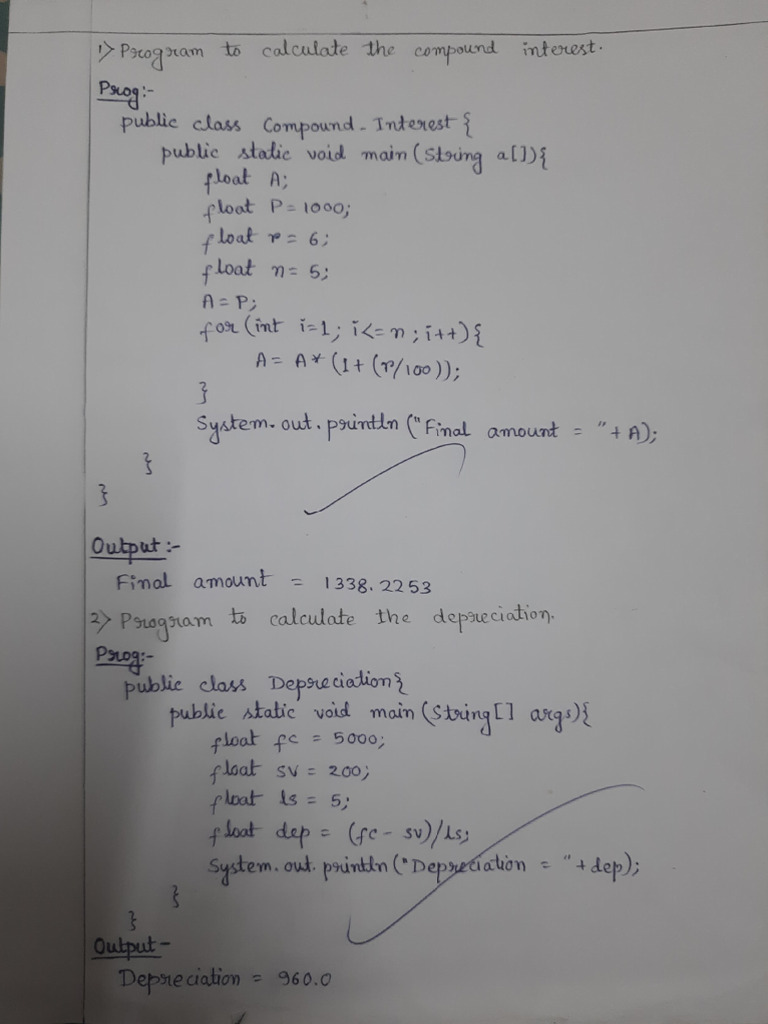 1> Program to calculate the compound interest.
Prog:-
public class Compound_Interest {
public static void main (String a[]){
float A;
float P = 1000;
float r = 6;
float n = 5;
A = P;
for (int i=1; i<= n ; i++) {
A = A * (1 + (r/100));
}
System.out.println ("Final amount = " + A);
}
}
Output :-
Final amount = 1338.2253
2> Program to calculate the depreciation.
Prog:-
public class Depreciation {
public static void main (String[] args){
float fc = 5000;
float sv = 200;
float ls = 5;
float dep = (fc - sv)/ls;
System.out.println ("Depreciation = " + dep);
}
}
Output -
Depreciation = 960.0